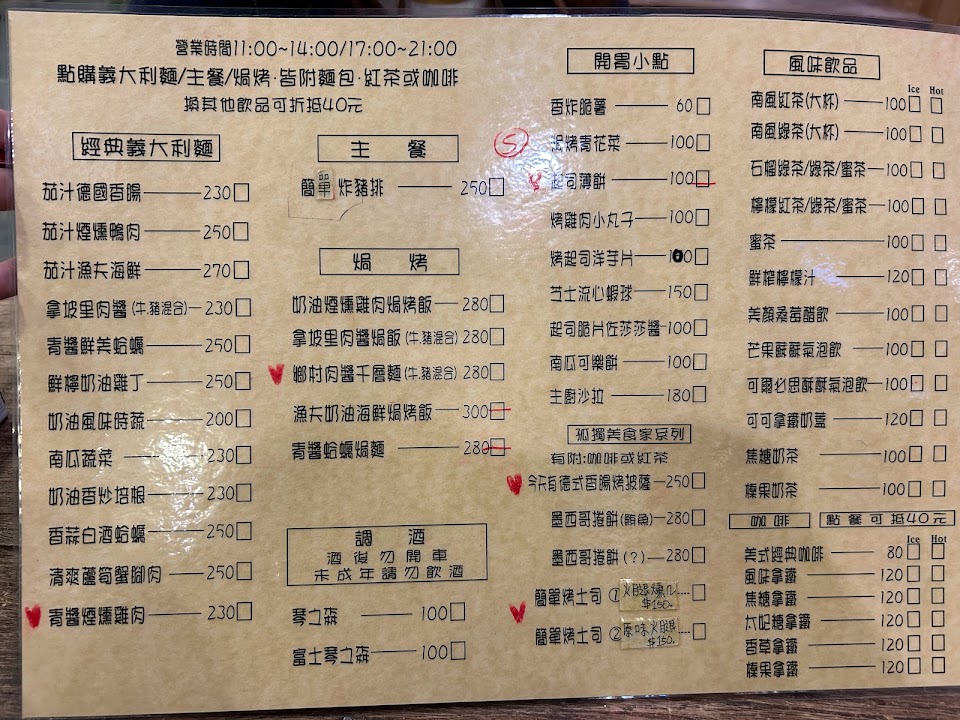 營業時間11:00~14:00/17:00~21:00
點購義大利麵/主餐/焗烤·皆附麵包·紅茶或咖啡
換其他飲品可折抵40元
經典義大利麵
茄汁德國香腸 230
茄汁煙燻鴨肉 250
茄汁漁夫海鮮 270
拿坡里肉醬(牛.豬混合) 230
青醬鮮美蛤蠣 250
鮮檸奶油雞丁 250
奶油風味時蔬 200
南瓜蔬菜 230
奶油香炒培根 230
香蒜白酒蛤蠣 250
清爽蘆筍蟹腳肉 250
青醬煙燻雞肉 230
主 餐
簡單炸豬排 250
焗 烤
奶油煙燻雞肉焗烤飯 280
拿坡里肉醬焗飯(牛.豬混合) 280
鄉村肉醬千層麵(牛.豬混合) 280
漁夫奶油海鮮焗烤飯 300
青醬蛤蠣焗麵 280
調 酒
酒後勿開車
未成年請勿飲酒
琴之森 100
富士琴之森 100
開胃小點
香炸脆薯 60
S
焗烤青花菜 100
起司薄餅 100
烤雞肉小丸子 100
烤起司洋芋片 100
芝士流心蝦球 150
起司脆片佐莎莎醬 100
南瓜可樂餅 100
主廚沙拉 180
孤獨美食家系列
有附:咖啡或紅茶
今天有德式香腸烤披薩 250
墨西哥捲餅(鮪魚) 280
墨西哥捲餅(?) 280
簡單烤土司 ①
$150.
簡單烤土司 ② 原味火腿
$150.
風味飲品
Ice Hot
南風紅茶(大杯) 100
南風綠茶(大杯) 100
石榴綠茶/綠茶/蜜茶 100
檸檬紅茶/綠茶/蜜茶 100
蜜茶 100
鮮榨檸檬汁 120
美顏桑莓醋飲 100
芒果酥酥氣泡飲 100
可爾必思酥酥氣泡飲 100
可可拿鐵奶蓋 120
焦糖奶茶 100
榛果奶茶 100
咖啡 點餐可抵40元
Ice Hot
美式經典咖啡 80
風味拿鐵 120
焦糖拿鐵 120
太妃糖拿鐵 120
香草拿鐵 120
榛果拿鐵 120